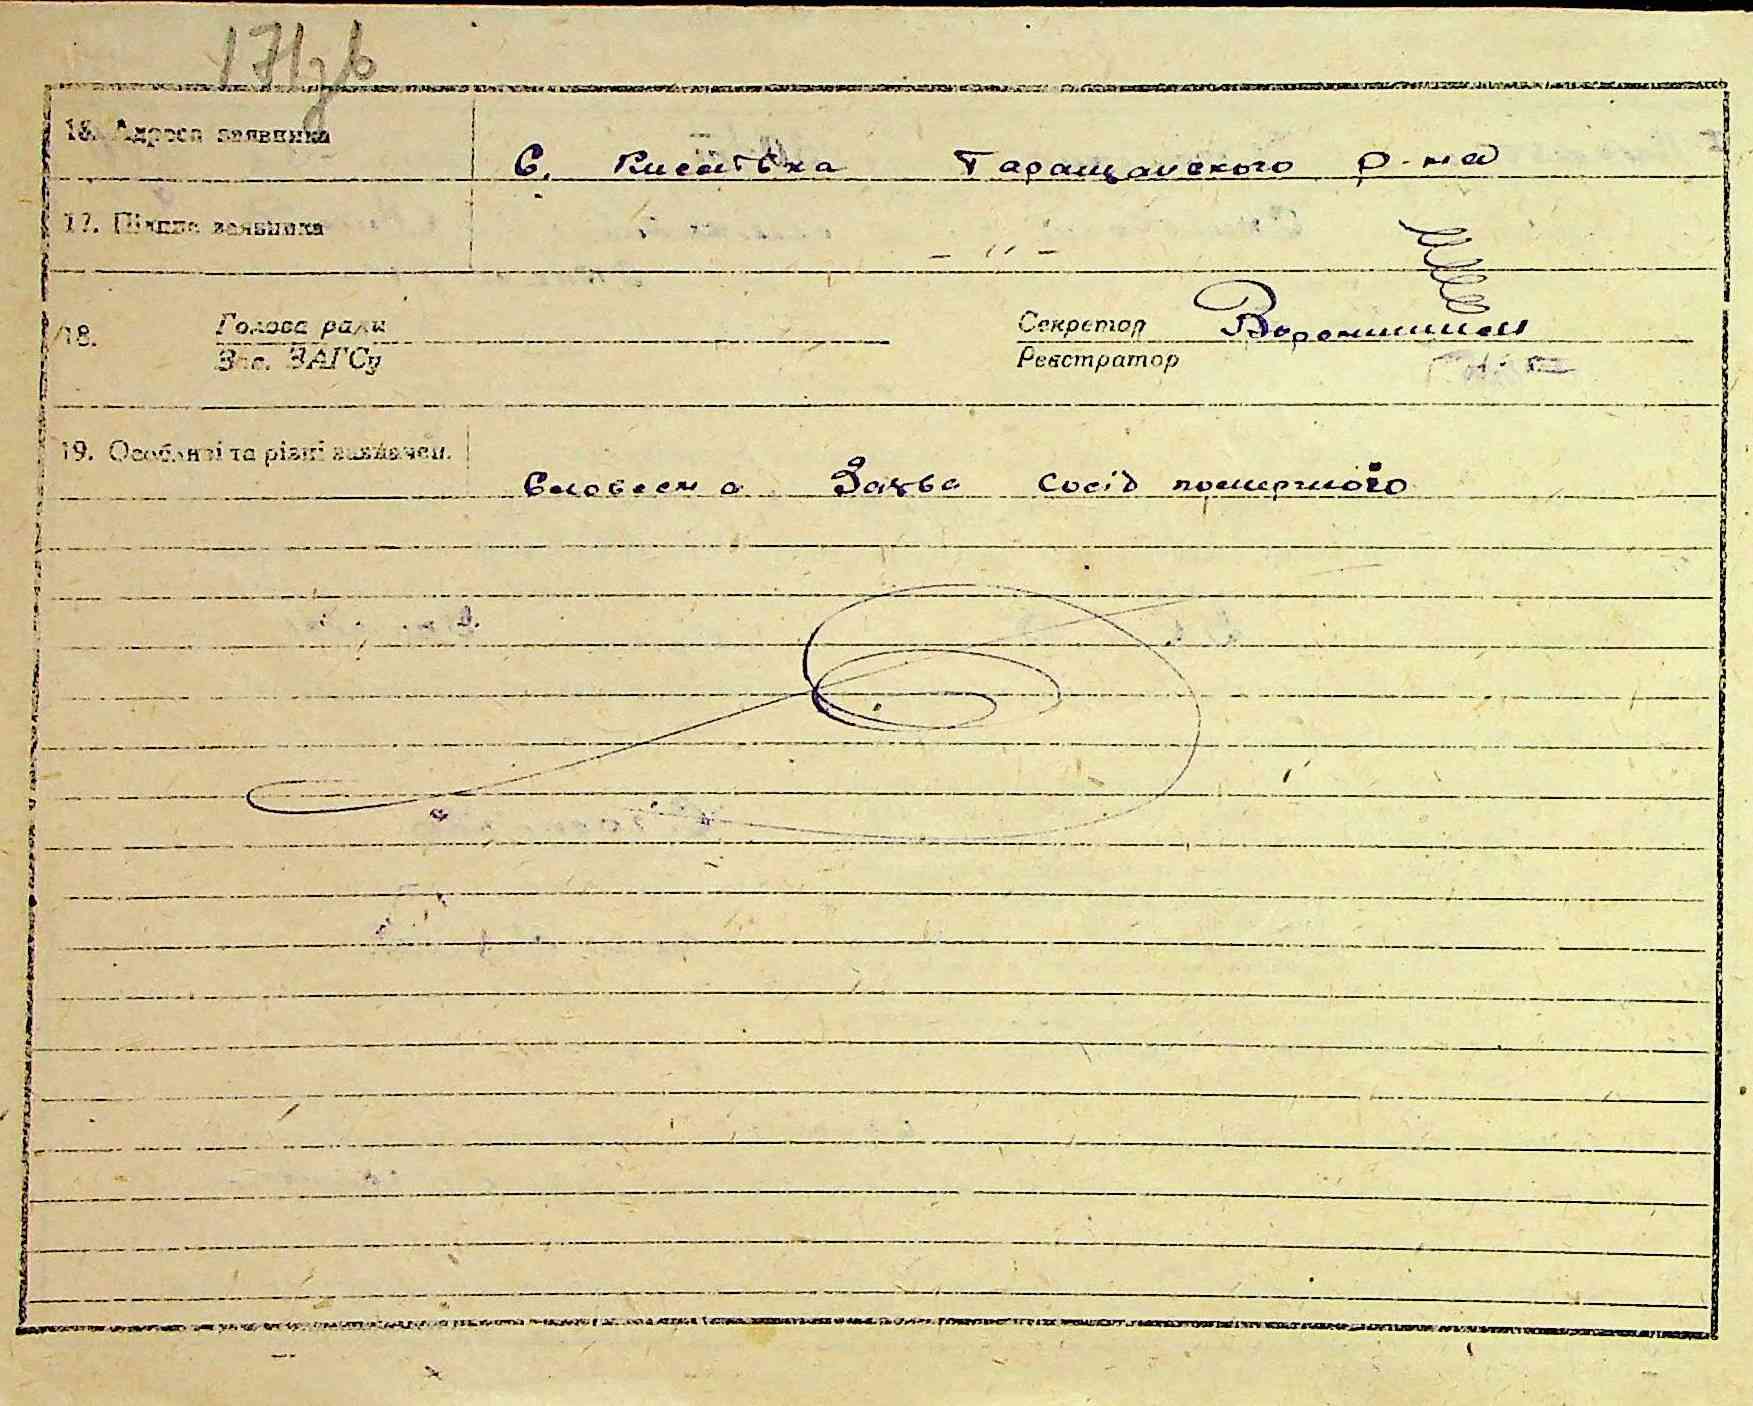 171зв
16. Адреса заявника
С. Кислівка Таращанського р-на
17. Підпис заявника
- " -
18. Голова ради
Зав. ЗАГСу
Секретар
Реєстратор
19. Особливі та різні зазначен.
Словесна Заява сусід помершого